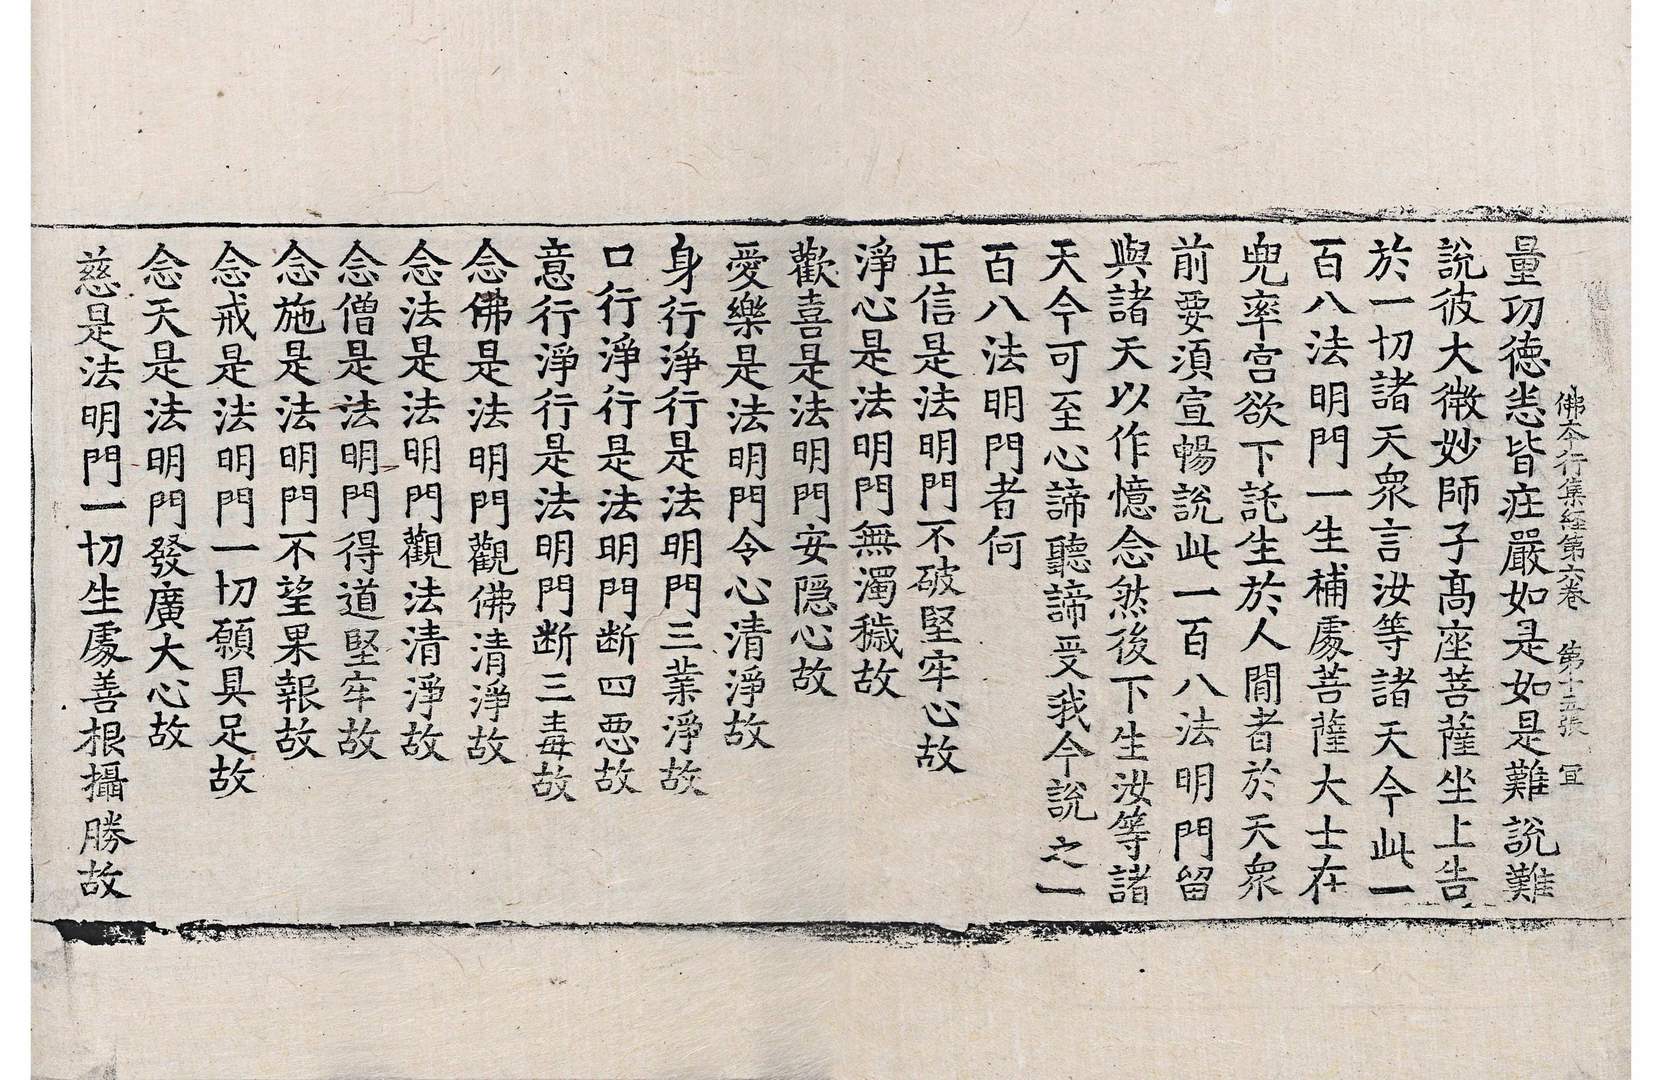 佛本行集經第六卷　第十五張　冝
量功德悉皆庄嚴如是如是難說難
說彼大微妙師子髙座菩薩坐上告
於一切諸天衆言汝等諸天今此一
百八法明門一生補處菩薩大士在
兜率宮欲下託生於人間者於天衆
前要須宣暢說此一百八法明門留
與諸天以作憶念然後下生汝等諸
天今可至心諦聽諦受我今說之一
百八法明門者何
正信是法明門不破堅牢心故
淨心是法明門無濁穢故
歡喜是法明門安隱心故
愛樂是法明門令心清淨故
身行淨行是法明門三業淨故
口行淨行是法明門断四惡故
意行淨行是法明門断三毒故
念佛是法明門觀佛清淨故
念法是法明門觀法清淨故
念僧是法明門得道堅牢故
念施是法明門不望果報故
念戒是法明門一切願具足故
念天是法明門發廣大心故
慈是法明門一切生處善根攝勝故